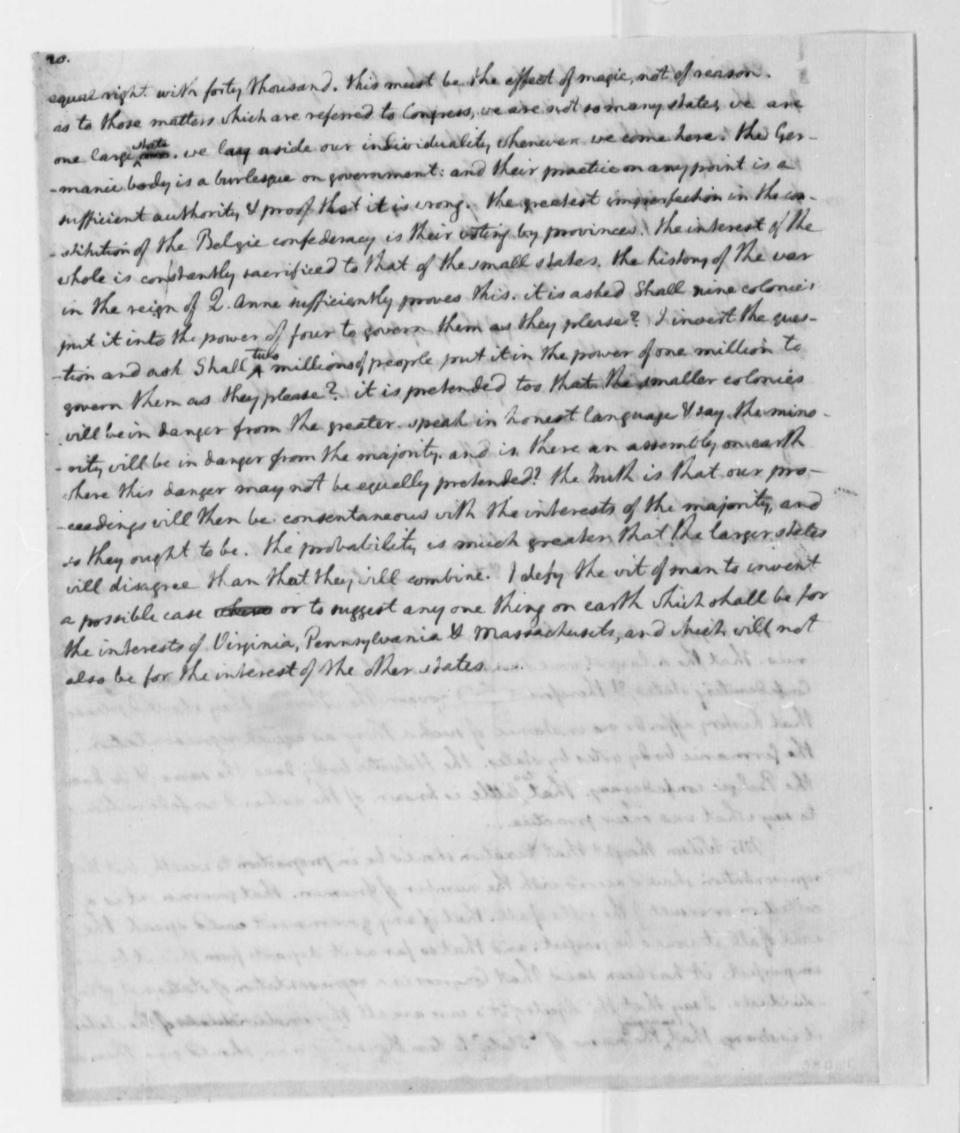 20.
equal right with forty thousand. this must be the effect of magic, not of reason.
as to those matters which are referred to Congress, we are not so many states, we are
one large state. we lay aside our individuality whenever we come here. the Ger-
-manic body is a burlesque on government: and their practice on any point is a
sufficient authority & proof that it is wrong. the greatest imperfection in the con-
-stitution of the Belgic confederacy is their voting by provinces. the interest of the
whole is constantly sacrificed to that of the small states. the history of the war
in the reign of Q. Anne sufficiently proves this. it is asked Shall nine colonies
put it into the power of four to govern them as they please? I invert the ques-
-tion and ask Shall two millions of people put it in the power of one million to
govern them as they please? it is pretended too that the smaller colonies
will be in danger from the greater. speak in honest language & say the mino-
-rity will be in danger from the majority. and is there an assembly on earth
where this danger may not be equally pretended? the truth is that our pro-
-ceedings will then be consentaneous with the interests of the majority, and
so they ought to be. the probability is much greater that the larger states
will disagree than that they will combine. I defy the wit of man to invent
a possible case or to suggest any one thing on earth which shall be for
the interests of Virginia, Pennsylvania & Massachusets, and which will not
also be for the interest of the other states